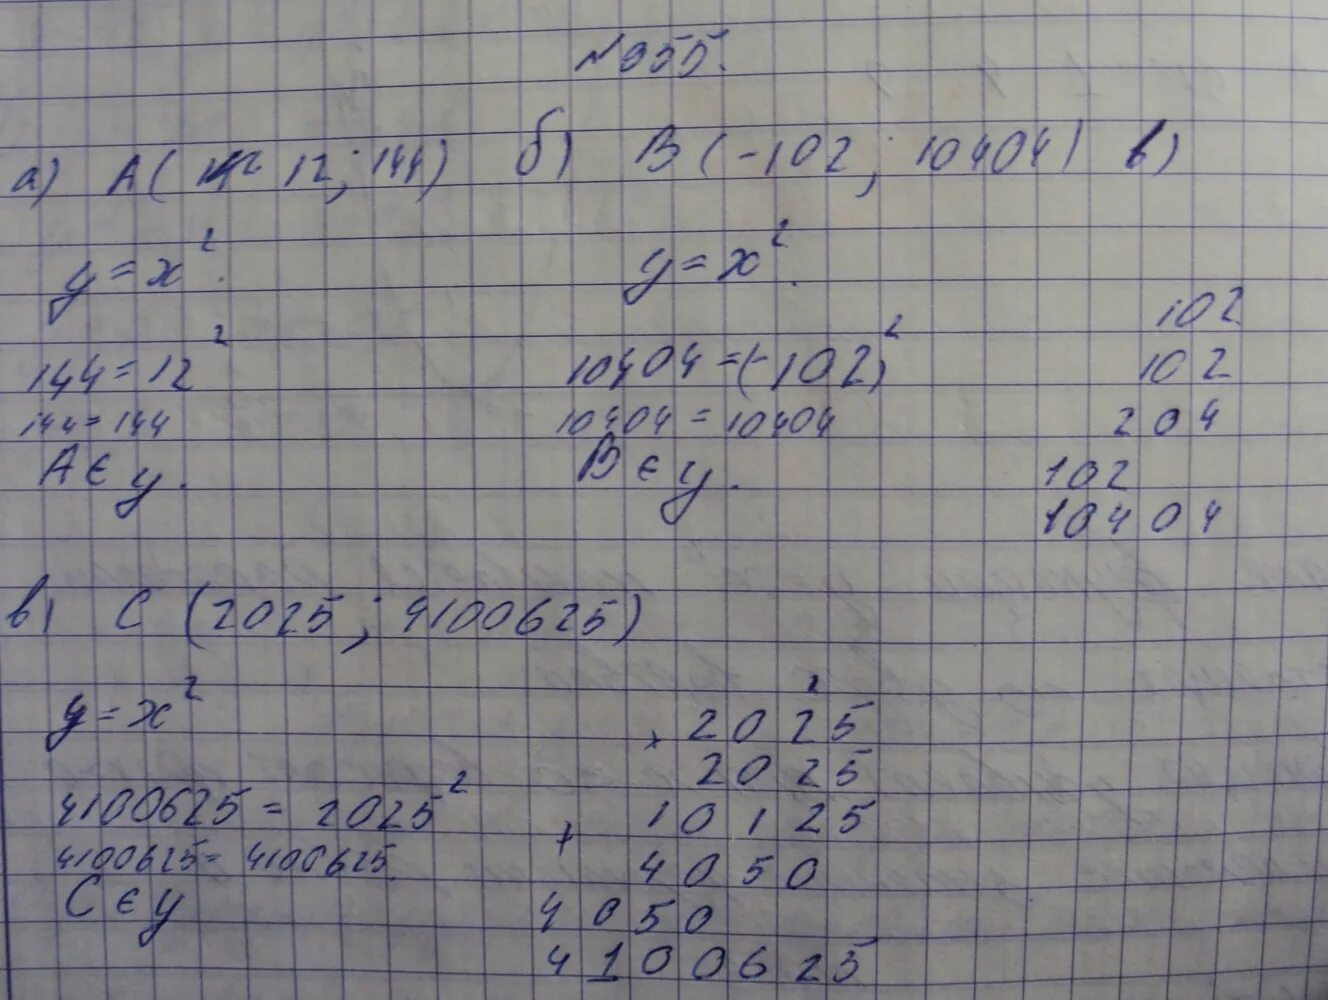 №955.
а) А( 12; 144) б) В (-102; 10404) в)
y = x². y = x².
144 = 12² 10404 = (-102)²
144 = 144 10404 = 10404
А ∈ y. В ∈ y.
102
102
204
102
10404
в) С (2025; 4100625)
y = x²
4100625 = 2025²
4100625 = 4100625.
С ∈ y
2
× 2025
2025
+ 10125
4050
4050
4100625